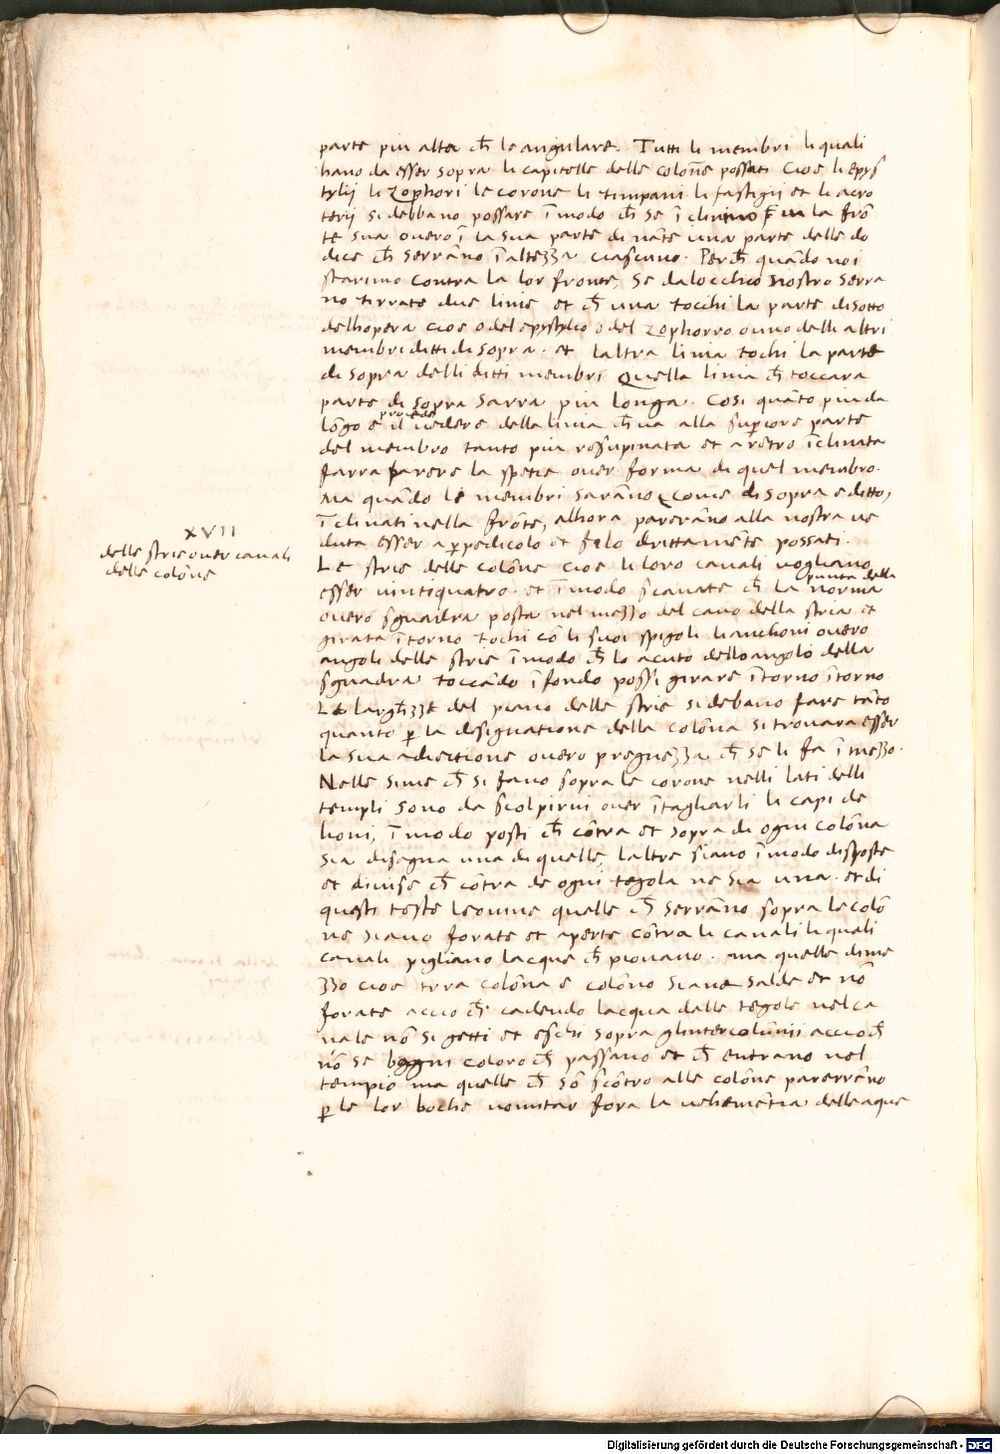 parte piu alta ch̃ le angulare. Tutti li membri li quali
hano da esser sopra li capitelle delle colon̄e possati cioe li epys
tylij li zophori le corone li timpani li fastigii et li acro
terij si debbano possare ĩ modo ch̃ se ĩclinino la frõ
te sua overo ĩ la sua parte di nãte una parte delle do
dice ch̃ serrãno ĩ altezza ciascuno. Perch̃ quãdo noi
staremo contra la lor fronte, se da locchio nostro serra
no tirrate due linie et ch̃ una tocchi la parte disotto
dellhopera cioe o del epystylio o del zophorro o uno delli altri
membri ditti di sopra. et laltra linia tochi la parte
di sopra delli ditti membri Quella linia ch̃ toccara
parte di sopra sarra piu longa. Cosi quãto piu da
lõgo e procede il vedere della linia ch̃ va alla superiore parte
del membro tanto piu rossupinata et aretro ĩclinata
farra parere la spetie over forma di quel membro.
Ma quãdo le membri sarãno come di sopra e ditto,
ĩclinati nella frõte, alhora parerãno alla nostra ve
duta esser a perpedicolo et filo drittamẽte possati.
XVII
delle strie over canali
delle colõne
Le strie delle colõne cioe li loro canali vogliano
esser vintiquatro. et ĩ modo scavate ch̃ la punta della norma
overo sguadra posta nel mezzo del cavo della stria et
girata ĩtorno tochi cõ li suoi spigoli li anchoni overo
angoli delle strie ĩ modo ch̃ lo acuto dello angolo della
sguadra toccãdo ĩ fondo possi girare ĩtorno ĩtorno
Le largh̃zze del piano delle strie si debano fare tãto
quanto per la designatione della colõna si trovara esser
la sua adiectione overo pregnezza ch̃ se li fa ĩ mezzo.
Nelle sime ch̃ si fano sopra le corone nelli lati delli
templi sono da scolpirui over ĩtagliarli li capi de
lioni, ĩ modo posti ch̃ cõtra et sopra di ogni colõna
sia disegna una di quelle, laltre siano ĩ modo disposte
et divise ch̃ cõtra de ogni tegola ne sia una. et di
questi teste leonine quelle ch̃ serrãno sopra le colõ
ne siano forate et aperte cõtra li canali li quali
canali pigliano lacque ch̃ piovano. ma quelle di me
zzo cioe tra colõna e colõno siane salde et nõ
forate accio ch̃ cadendo lacqua dalle tegole nel ca
nale nõ si getti et eschi sopra glintercolũnii accioch̃
nõ se bagni coloro ch̃ passano et ch̃ entrano nel
tempio ma quelle ch̃ sõ scõtro alle colõne parerrãno
per le lor boche vomitar fora la vehemẽtia delle aque
Digitalisierung gefördert durch die Deutsche Forschungsgemeinschaft - DFG